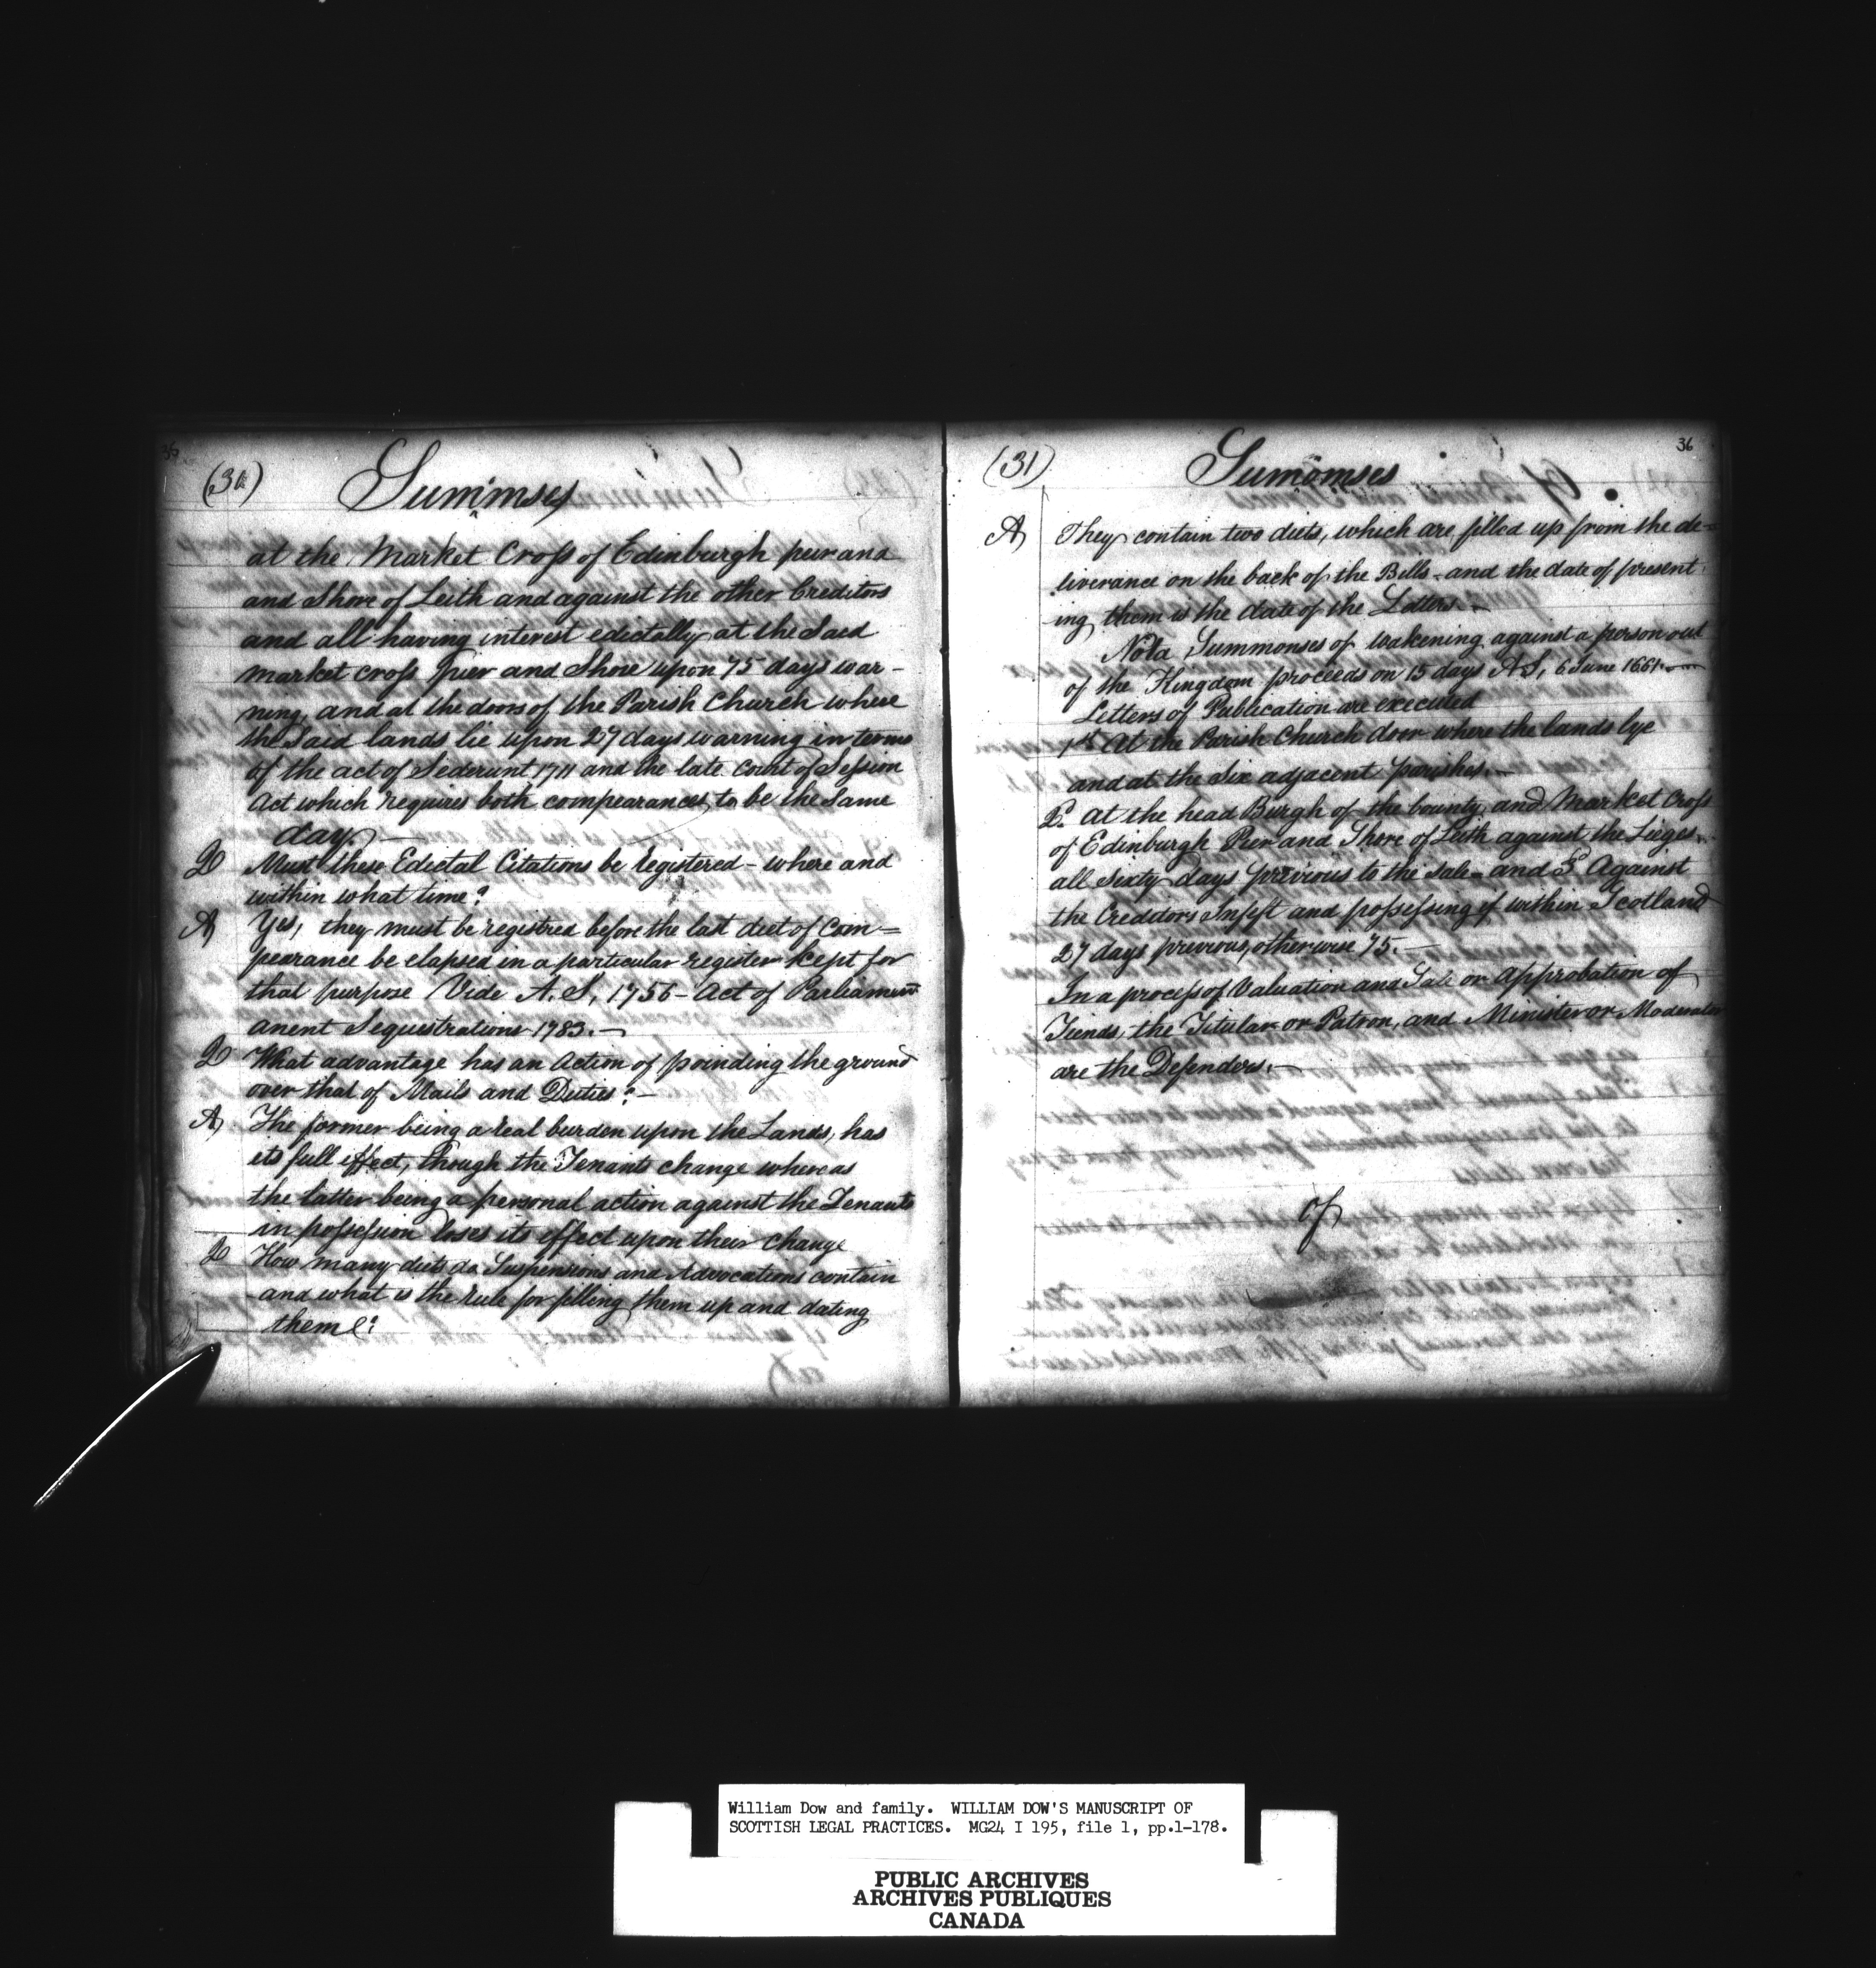 (30)
Sum̄mses
at the Market Cross of Edinburgh peir and
and Shore of Leith and against the other Creditors
and all having interest edictally at the Said
market cross pier and Shore upon 75 days war-
ning, and at the doors of the Parish Church where
the Said lands lie upon 27 days warning in terms
of the act of Sederunt 1711 and the late Court of Session
Act which requires both compearances to be the Same
day.—
Q Must these Edictal Citations be registered - where and
within what time?
A Yes, they must be registred before the last diet of Com=
pearance be elapsed in a particular register kept for
that purpose Vide A.S, 1756 - Act of Parliament
anent Sequestrations 1783.—
Q What advantage has an Action of poinding the ground
over that of Mails and Duties?—
A The former being a real burden upon the Lands, has
its full effect, though the Tenants change whereas
the latter being a personal action against the Tenants
in possession loses its effect upon their change
Q How many diets do Suspensions and Advocations contain
and what is the rule for filling them up and dating
them?
36
(31)
Sumōmses
A They contain two diets, which are filled up from the de-
liverance on the back of the Bills - and the date of present
ing them is the date of the Letters.—
Nota Summonses of wakening against a person out
of the Kingdom proceeds on 15 days A.S, 6 June 1661.
Letters of Publication are executed
1st At the Parish Church door where the lands lye
and at the Six adjacent parishes.—
2. At the head Burgh of the County and Market Cross
of Edinburgh Pier and Shore of Leith against the Lieges.
all Sixty days previous to the sale - and 3d Against
the Creditors Infeft and possessing if within Scotland
27 days previous, otherwise 75.—
In a process of Valuation and Sale or Approbation of
Tiends, the Titular or Patron, and Minister or Moderator
are the Defenders.—
of
William Dow and family. WILLIAM DOW'S MANUSCRIPT OF
SCOTTISH LEGAL PRACTICES. MG24 I 195, file 1, pp.1-178.
PUBLIC ARCHIVES
ARCHIVES PUBLIQUES
CANADA